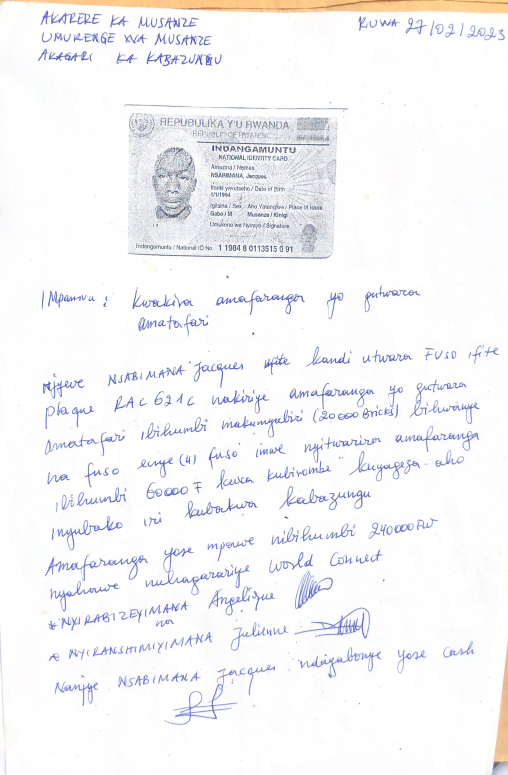 AKARERE KA MUSANZE
UMURENGE WA MUSANZE
AKAGARI KA KABAZUNGU
KUWA 27/02/2023
REPUBULIKA Y'U RWANDA
REPUBLIC OF RWANDA
INDANGAMUNTU
NATIONAL IDENTITY CARD
Amazina / Names
NSABIMANA, Jacques
Itariki yavutseho / Date of Birth
1/1/1984
Igitsina / Sex Aho Yatangiwe / Place of Issue
Gabo / M Musanze / Kinigi
Umukono wa Nyirayo / Signature
Indangamuntu / National ID No 1 1984 8 0113515 0 91
Impamvu : Kwakira amafaranga yo gutwara
amatafari
Njyewe NSABIMANA Jacques kandi utwara FUSO ifite
plaque RAC 621C nakiriye amafaranga yo gutwara
amatafari ibihumbi makumyabiri (20000 Bricks) bihwanye
na fuso enye (4) fuso imwe nyitwarira amafaranga
ibihumbi 60000 F kuva kubirombe kuyageza aho
inyubako iri kubakwa kabazungu
Amafaranga yose mpawe nibihumbi 240000 FRW
nyahawe nuhagarariye World Connect
* NYIRABIZEYIMANA Angelique
na
* NYIRANSHIMIYIMANA Julienne
Nanjye NSABIMANA Jacques ndayabonye yose cash